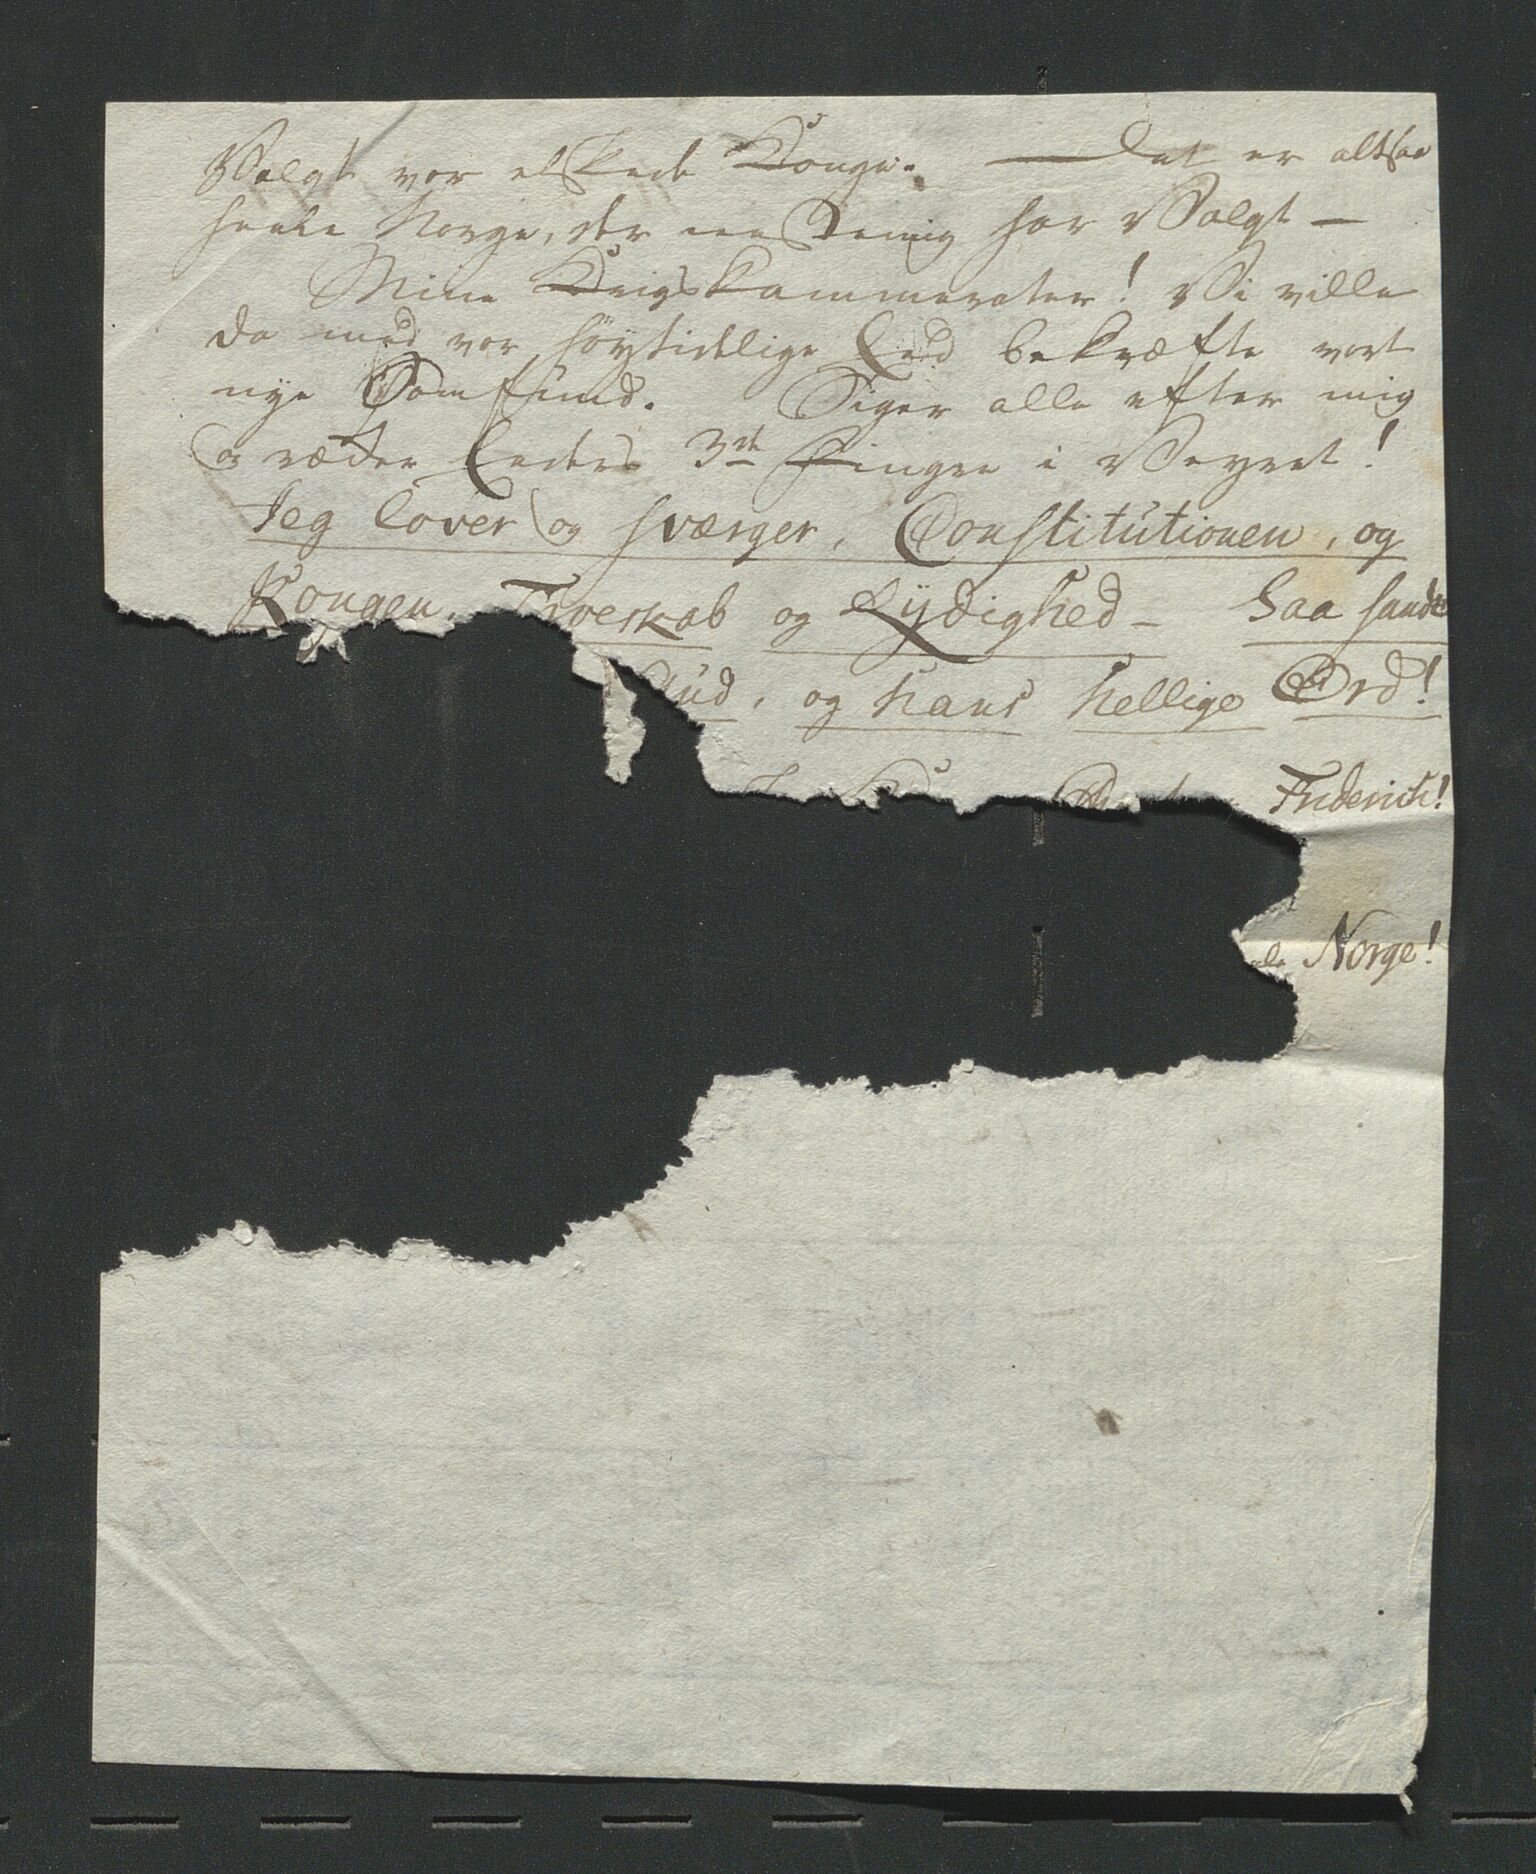 Valgt vor elskede Konge. — Det er altsaa
heele Norge, der eenstemig har Valgt —
Mine Krigskammerater! Vi ville
da med vor høytidelige Eed bekræfte vort
nye Samfund. Siger alle efter mig
og ræcker Eeders 3de Fingre i Veyret!
Jeg lover og sværger, Constitutionen, og
Kongen, Troeskab og Lydighed — Saa sandt
Gud, og hans hellige Ord!
Friderich!
Norge!